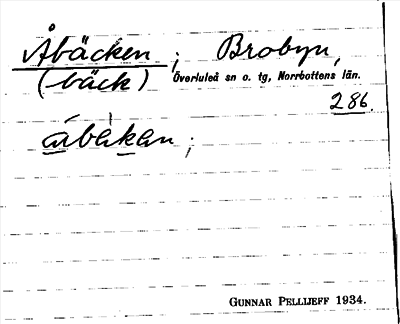 Åbäcken; Brobyn,
(bäck) Överluleå sn o. tg, Norrbottens län.
286.
åbekan;
GUNNAR PELLIJEFF 1934.